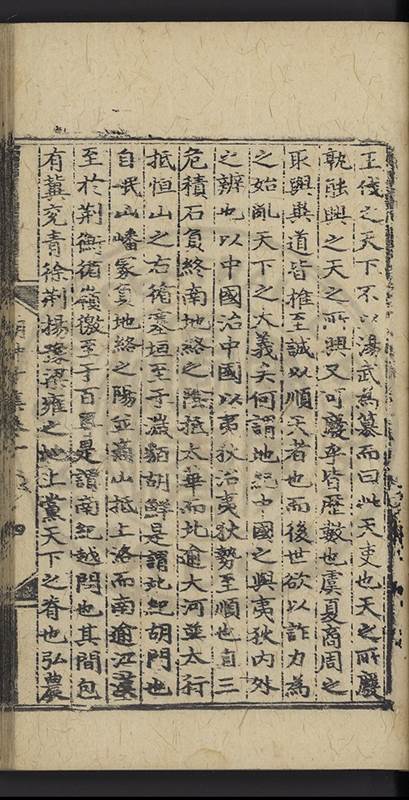 王伐之天下不以湯武爲簒而曰此天吏也天之所廢
孰能興之天之所興又可廢乎皆歷數也虞夏商周之
取與異道皆推至誠以順天者也而後世欲以詐力爲
之始亂天下之大義矣何謂地紀中國之與夷狄內外
之辨也以中國治中國以夷狄治夷狄勢至順也自三
危積石負終南地絡之陰抵太華而北逾大河並太行
抵恒山之右循塞垣至于濊貊胡鮮是謂北紀胡門也
自岷山嶓冢負地絡之陽並商山抵上洛而南逾江漢
至於荊衡循嶺徼至于百粤是謂南紀越門也其間包
有冀兗青徐荊揚豫梁雍之地上黨天下之脊也弘農